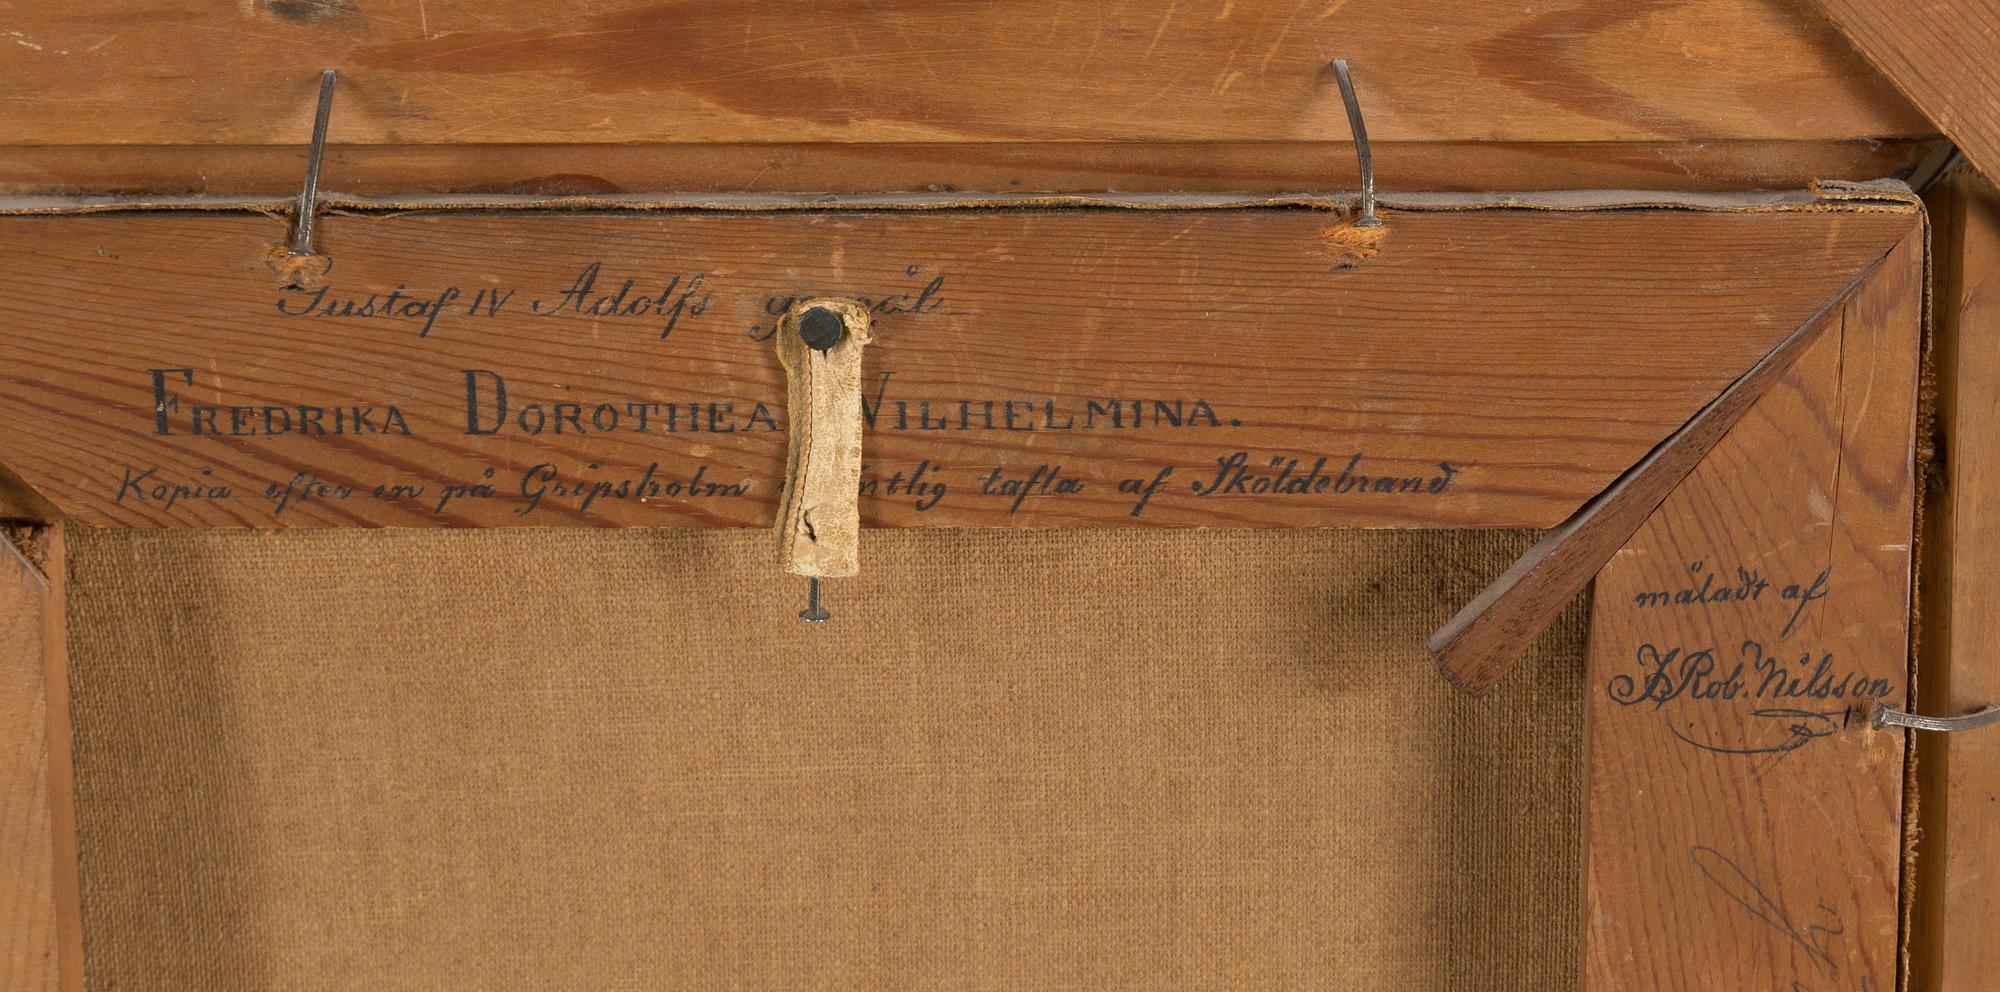 Gustaf IV Adolfs
FREDRIKA DOROTHEA WILHELMINA.
Kopia efter en på Gripsholm tafla af Sköldebrand
måladt af
J Rob. Nilsson